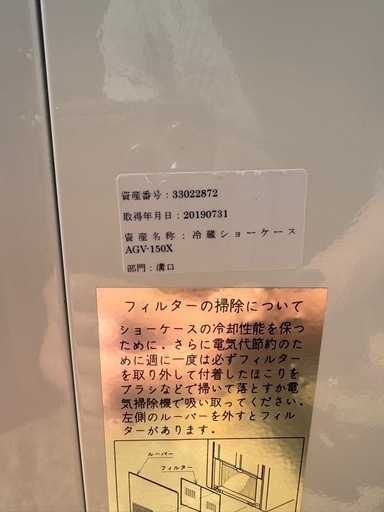 資産番号：33022872
取得年月日：20190731
資産名称：冷蔵ショーケース
AGV-150X
部門：溝口
フィルターの掃除について
ショーケースの冷却性能を保つ
ために、さらに電気代節約のた
めに週に一度は必ずフィルター
を取り外して付着したほこりを
ブラシなどで掃いて落とすか電
気掃除機で吸い取ってください。
左側のルーバーを外すとフィル
ターがあります。
ルーバー
フィルター